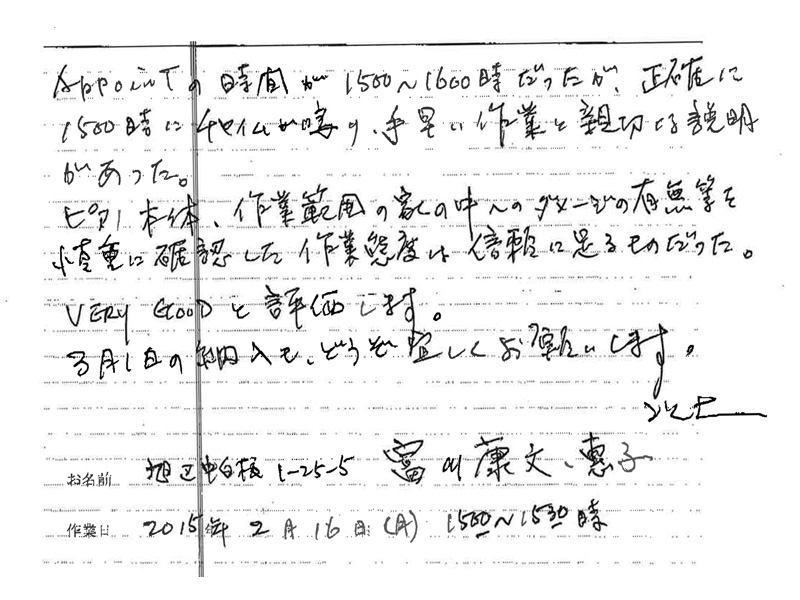 Appointの時間が1500〜1600時だったが、正確に
1500時にチャイムが鳴り、手早い作業と親切な説明
があった。
ピアノ本体、作業範囲の家の中へのダメージの有無等を
慎重に確認した作業態度は信頼に足るものだった。
VERY GOODと評価します。
3月1日の納入も、どうぞ宜しくお願いします。
以上
お名前 旭区中白根1-25-5 富川康文、恵子
作業日 2015年2月16日(月) 1500〜1530時